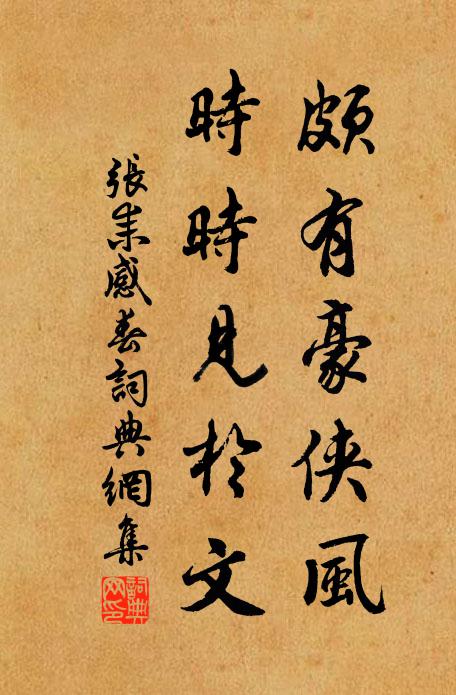 頗有豪俠風
時時見於文
張耒感春詞典網集
詞典網印